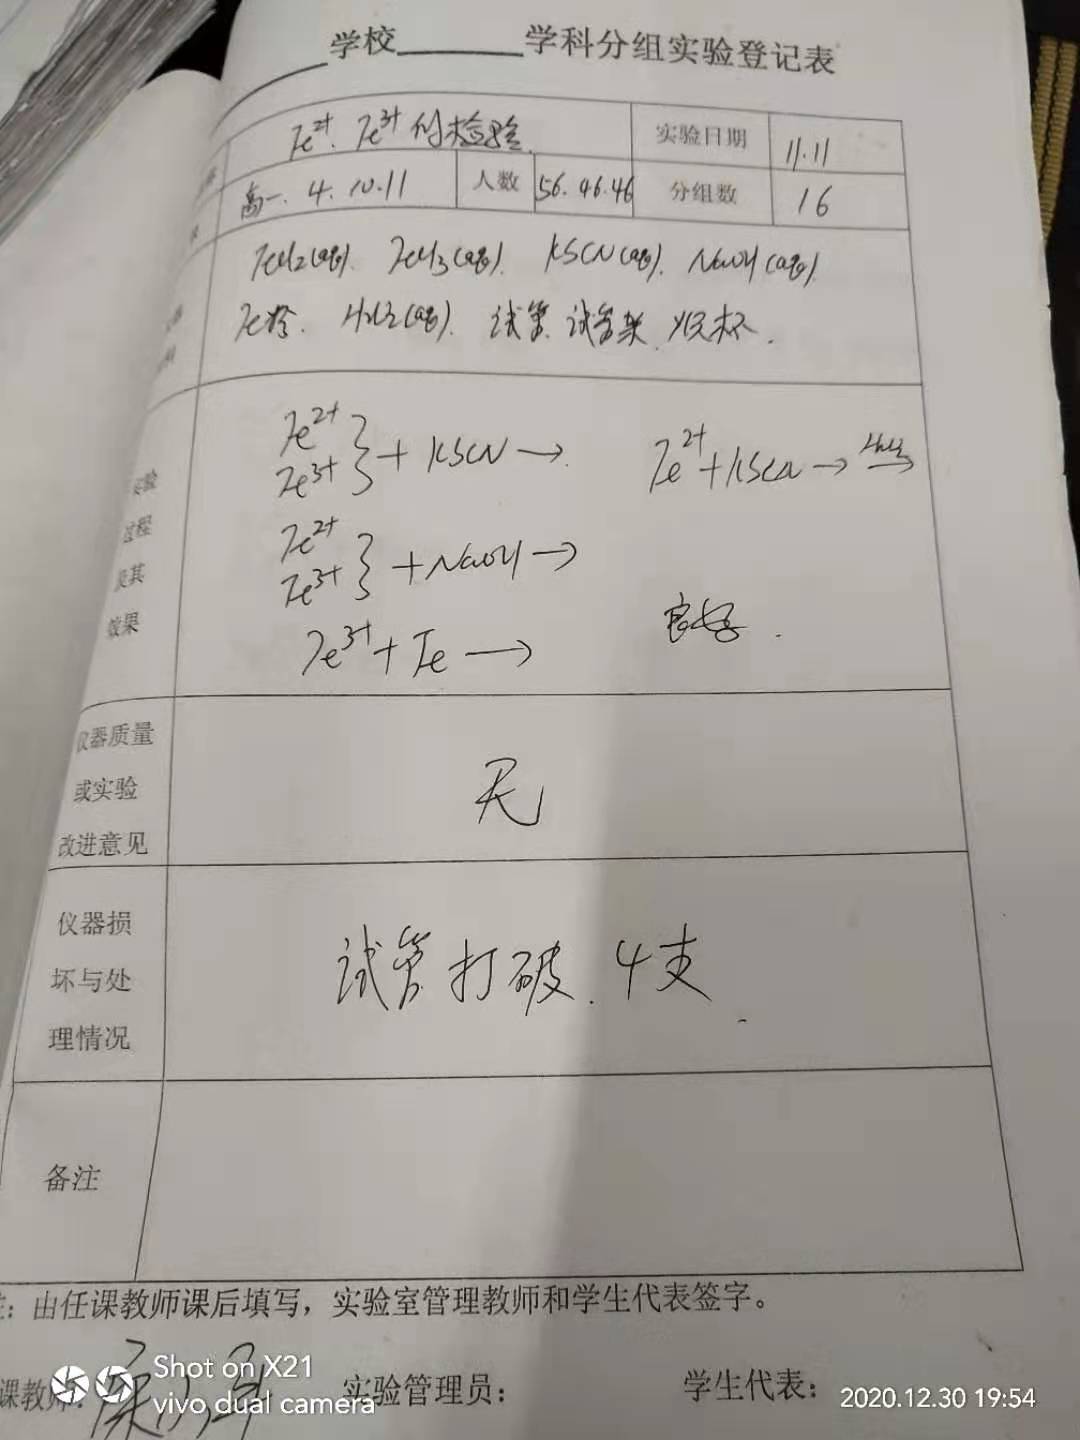 学校______学科分组实验登记表
Fe²⁺. Fe³⁺的检验. 实验日期 11.11
高一. 4. 10.11 人数 56. 46. 46 分组数 16
FeCl₂(aq). FeCl₃(aq). KSCN(aq). NaOH(aq).
Fe粉. H₂O₂(aq). 试管. 试管架. 烧杯.
实验
过程
及其
效果
Fe²⁺
Fe³⁺ } + KSCN → Fe²⁺ + KSCN →
Fe²⁺
Fe³⁺ } + NaOH →
Fe³⁺ + Fe → 良好.
仪器质量
或实验
改进意见
无
仪器损
坏与处
理情况
试管打破. 4支.
备注
注：由任课教师课后填写，实验室管理教师和学生代表签字。
课教师： 实验管理员： 学生代表：
Shot on X21
vivo dual camera
2020.12.30 19:54